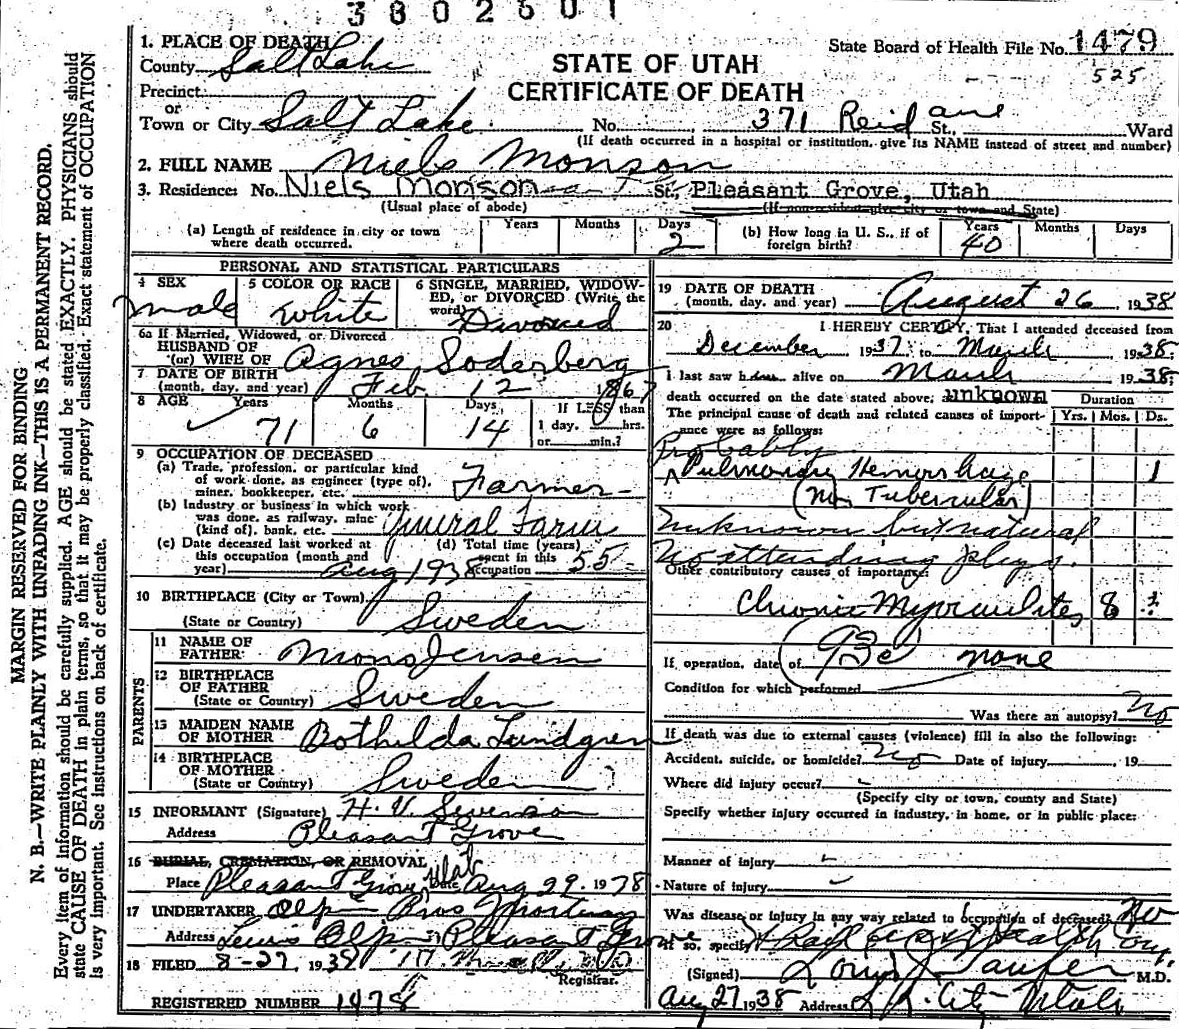 3802601
1. PLACE OF DEATH
County Salt Lake
Precinct
or
Town or City Salt Lake No. 371 Reid ave St., Ward
(If death occurred in a hospital or institution, give its NAME instead of street and number)
State Board of Health File No. 1479
525
STATE OF UTAH
CERTIFICATE OF DEATH
2. FULL NAME Niels Monson
3. Residence: No. Niels Monson St., Pleasant Grove, Utah
(Usual place of abode) (If non-resident give city or town and State)
(a) Length of residence in city or town where death occurred. Years Months Days 2
(b) How long in U. S., if of foreign birth? Years 40 Months Days
PERSONAL AND STATISTICAL PARTICULARS
4 SEX male
5 COLOR OR RACE White
6 SINGLE, MARRIED, WIDOWED, or DIVORCED (Write the word) Divorced
6a If Married, Widowed, or Divorced
HUSBAND OF
(or) WIFE OF Agnes Soderberg
7 DATE OF BIRTH
(month, day, and year) Feb. 12 1867
8 AGE Years 71 Months 6 Days 14 If LESS than 1 day, hrs. or min.?
9 OCCUPATION OF DECEASED
(a) Trade, profession, or particular kind of work done, as engineer (type of), miner, bookkeeper, etc. Farmer
(b) Industry or business in which work was done, as railway, mine (kind of), bank, etc. General Farm
(c) Date deceased last worked at this occupation (month and year) Aug 1938
(d) Total time (years) spent in this occupation 55
10 BIRTHPLACE (City or Town)
(State or Country) Sweden
PARENTS
11 NAME OF FATHER Mons Jensen
12 BIRTHPLACE OF FATHER
(State or Country) Sweden
13 MAIDEN NAME OF MOTHER Bothilda Lundgren
14 BIRTHPLACE OF MOTHER
(State or Country) Sweden ?
15 INFORMANT (Signature) H. V. Swenson
Address Pleasant Grove
16 BURIAL, CREMATION, OR REMOVAL
Place Pleasant Grove, Utah Date Aug 29, 1938
17 UNDERTAKER Olpin Bros Mortuary
Address Lewis Olpin Pleasant Grove
18 FILED 8-27, 1938
Registrar.
REGISTERED NUMBER 1478
19 DATE OF DEATH
(month, day, and year) August 26 1938
20 I HEREBY CERTIFY, That I attended deceased from
December 1937 to March, 1938;
I last saw h alive on March, 1938;
death occurred on the date stated above; unknown Duration
The principal cause of death and related causes of importance were as follows: Yrs. Mos. Ds.
Probably
Pulmonary Hemorrhage 1
(Non Tubercular)
Unknown but natural
No attending phys.
Other contributory causes of importance:
Chronic Myocarditis 8
If operation, date of none
Condition for which performed
Was there an autopsy? No
If death was due to external causes (violence) fill in also the following:
Accident, suicide, or homicide? No Date of injury, 19
Where did injury occur?
(Specify city or town, county and State)
Specify whether injury occurred in industry, in home, or in public place:
Manner of injury
Nature of injury
Was disease or injury in any way related to occupation of deceased? No
If so, specify
(Signed) M.D.
Aug 27 1938 Address S. L. City Utah
MARGIN RESERVED FOR BINDING
N. B.—WRITE PLAINLY WITH UNFADING INK—THIS IS A PERMANENT RECORD.
Every item of information should be carefully supplied. AGE should be stated EXACTLY. PHYSICIANS should
state CAUSE OF DEATH in plain terms, so that it may be properly classified. Exact statement of OCCUPATION
is very important. See instructions on back of certificate.